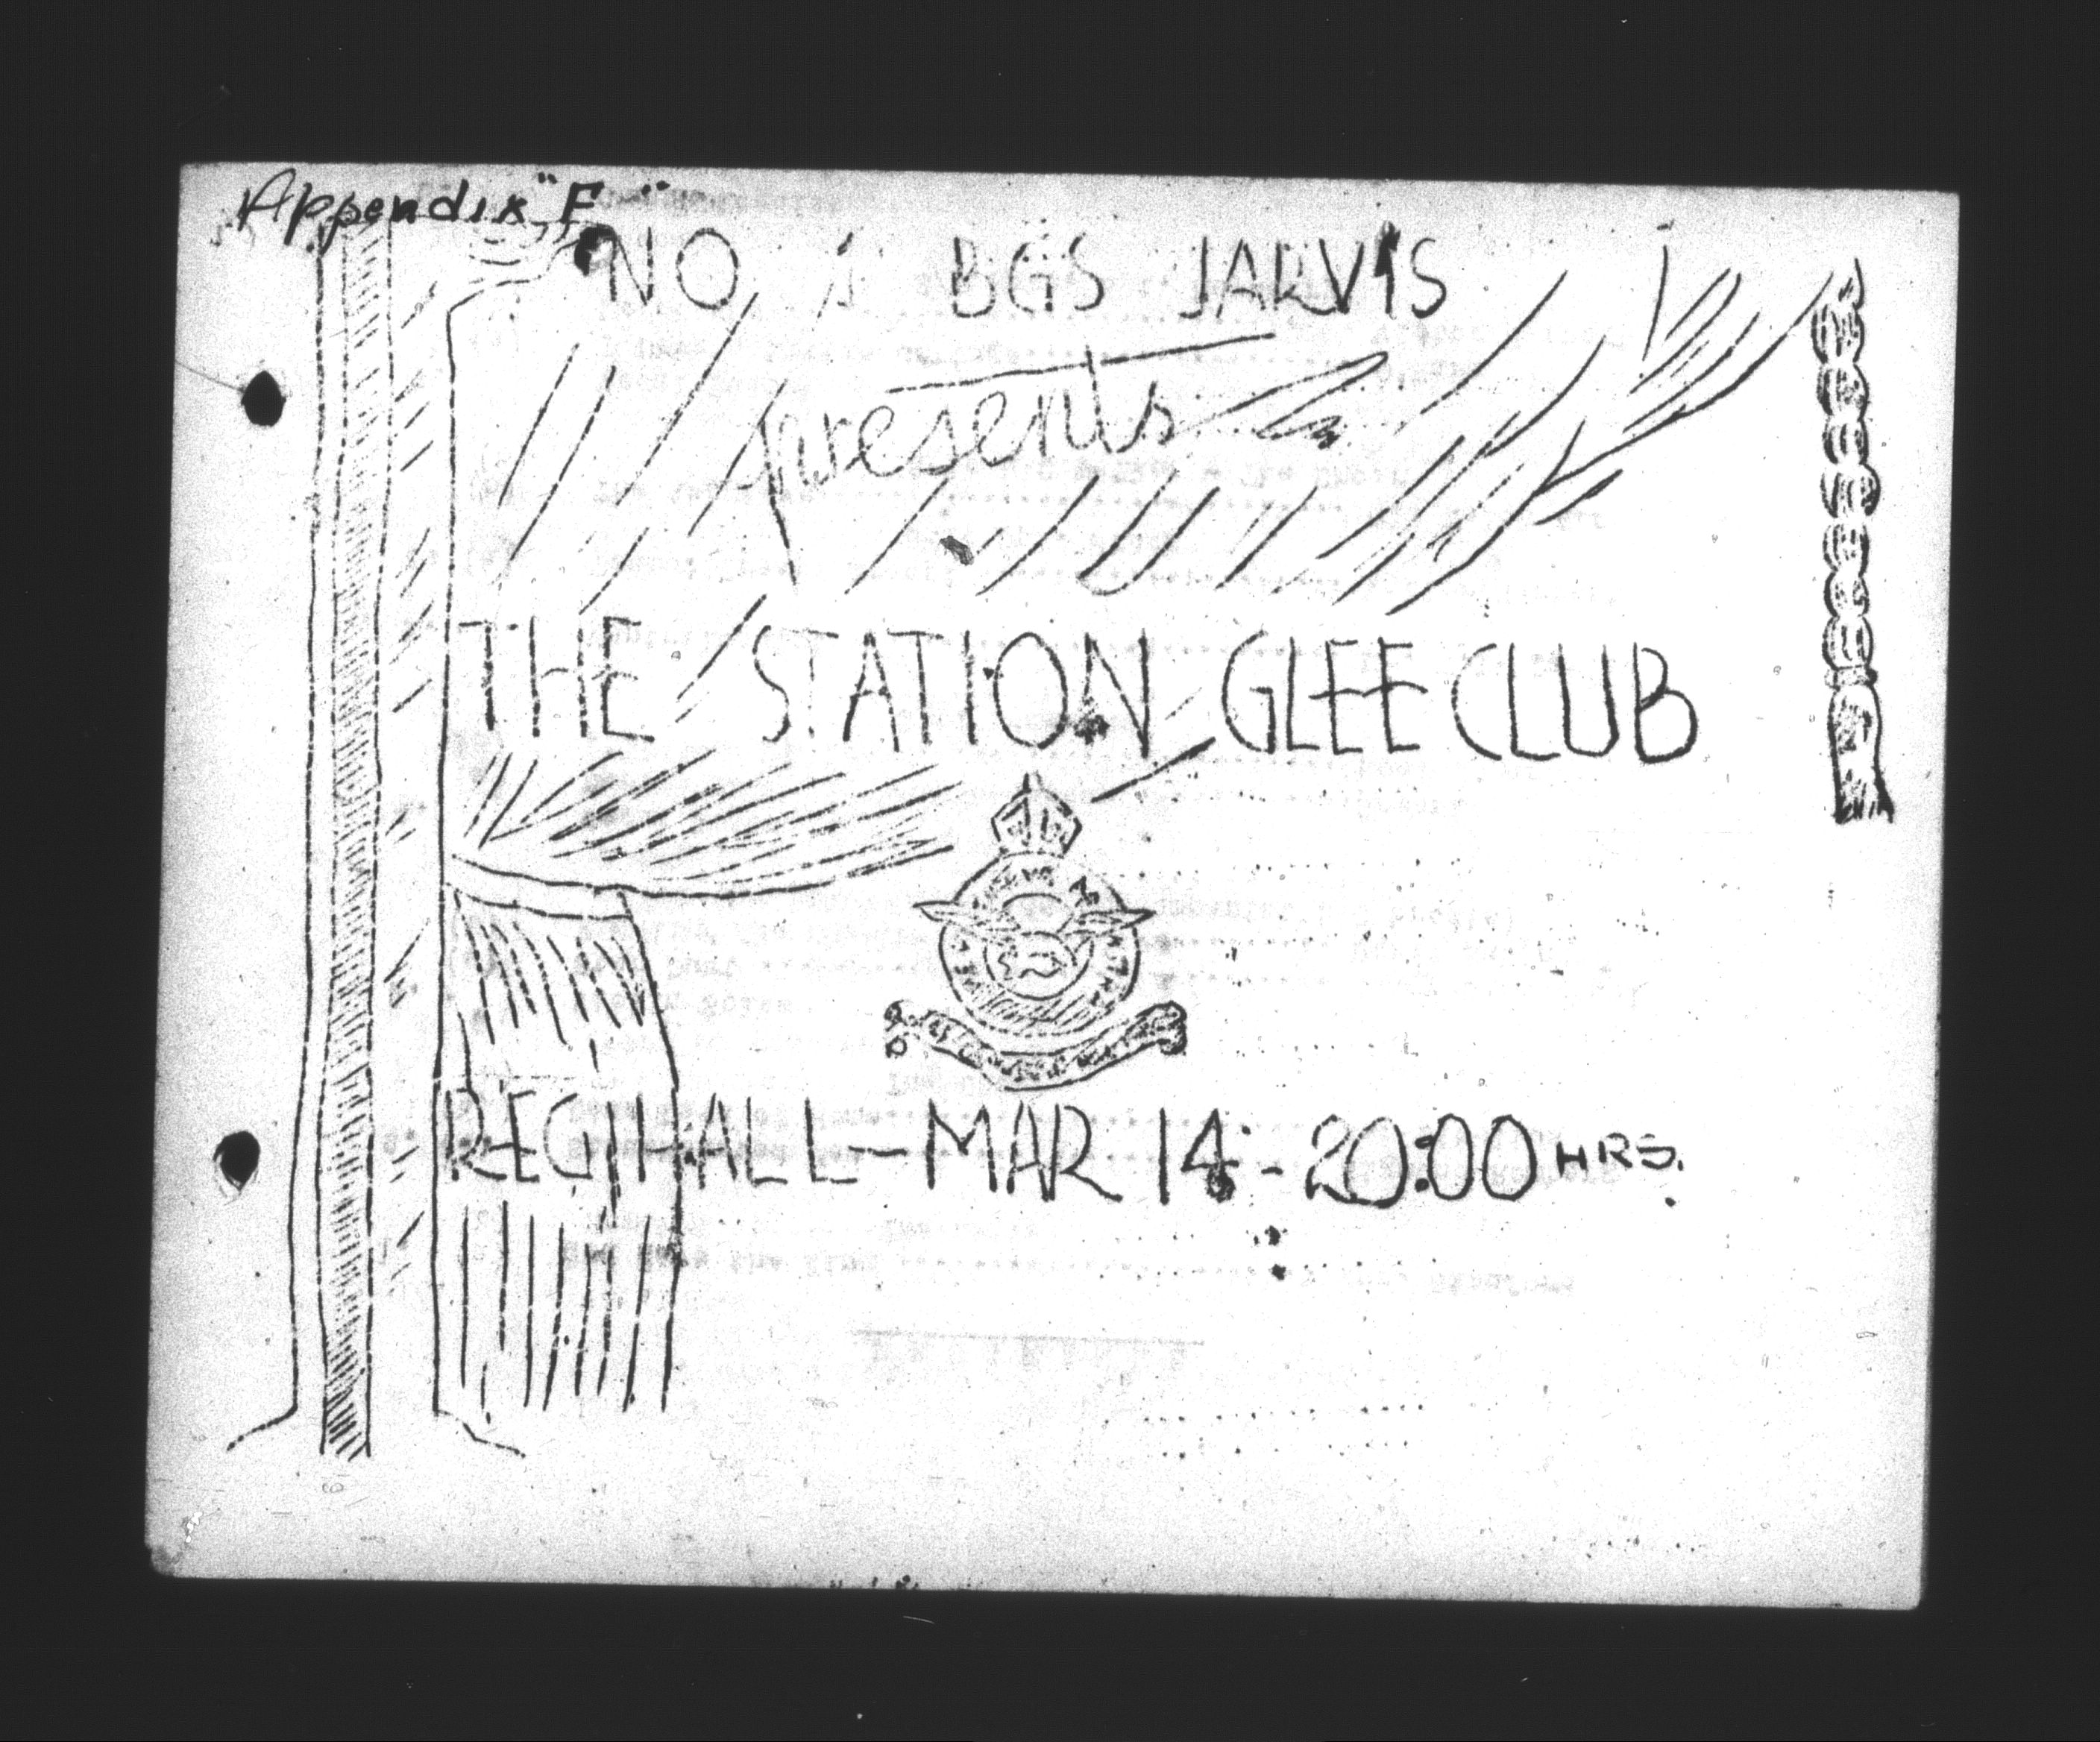 Appendix "F"
NO 1 BGS JARVIS
presents
THE STATION GLEE CLUB
REGIHALL-MAR 14-20:00 HRS.